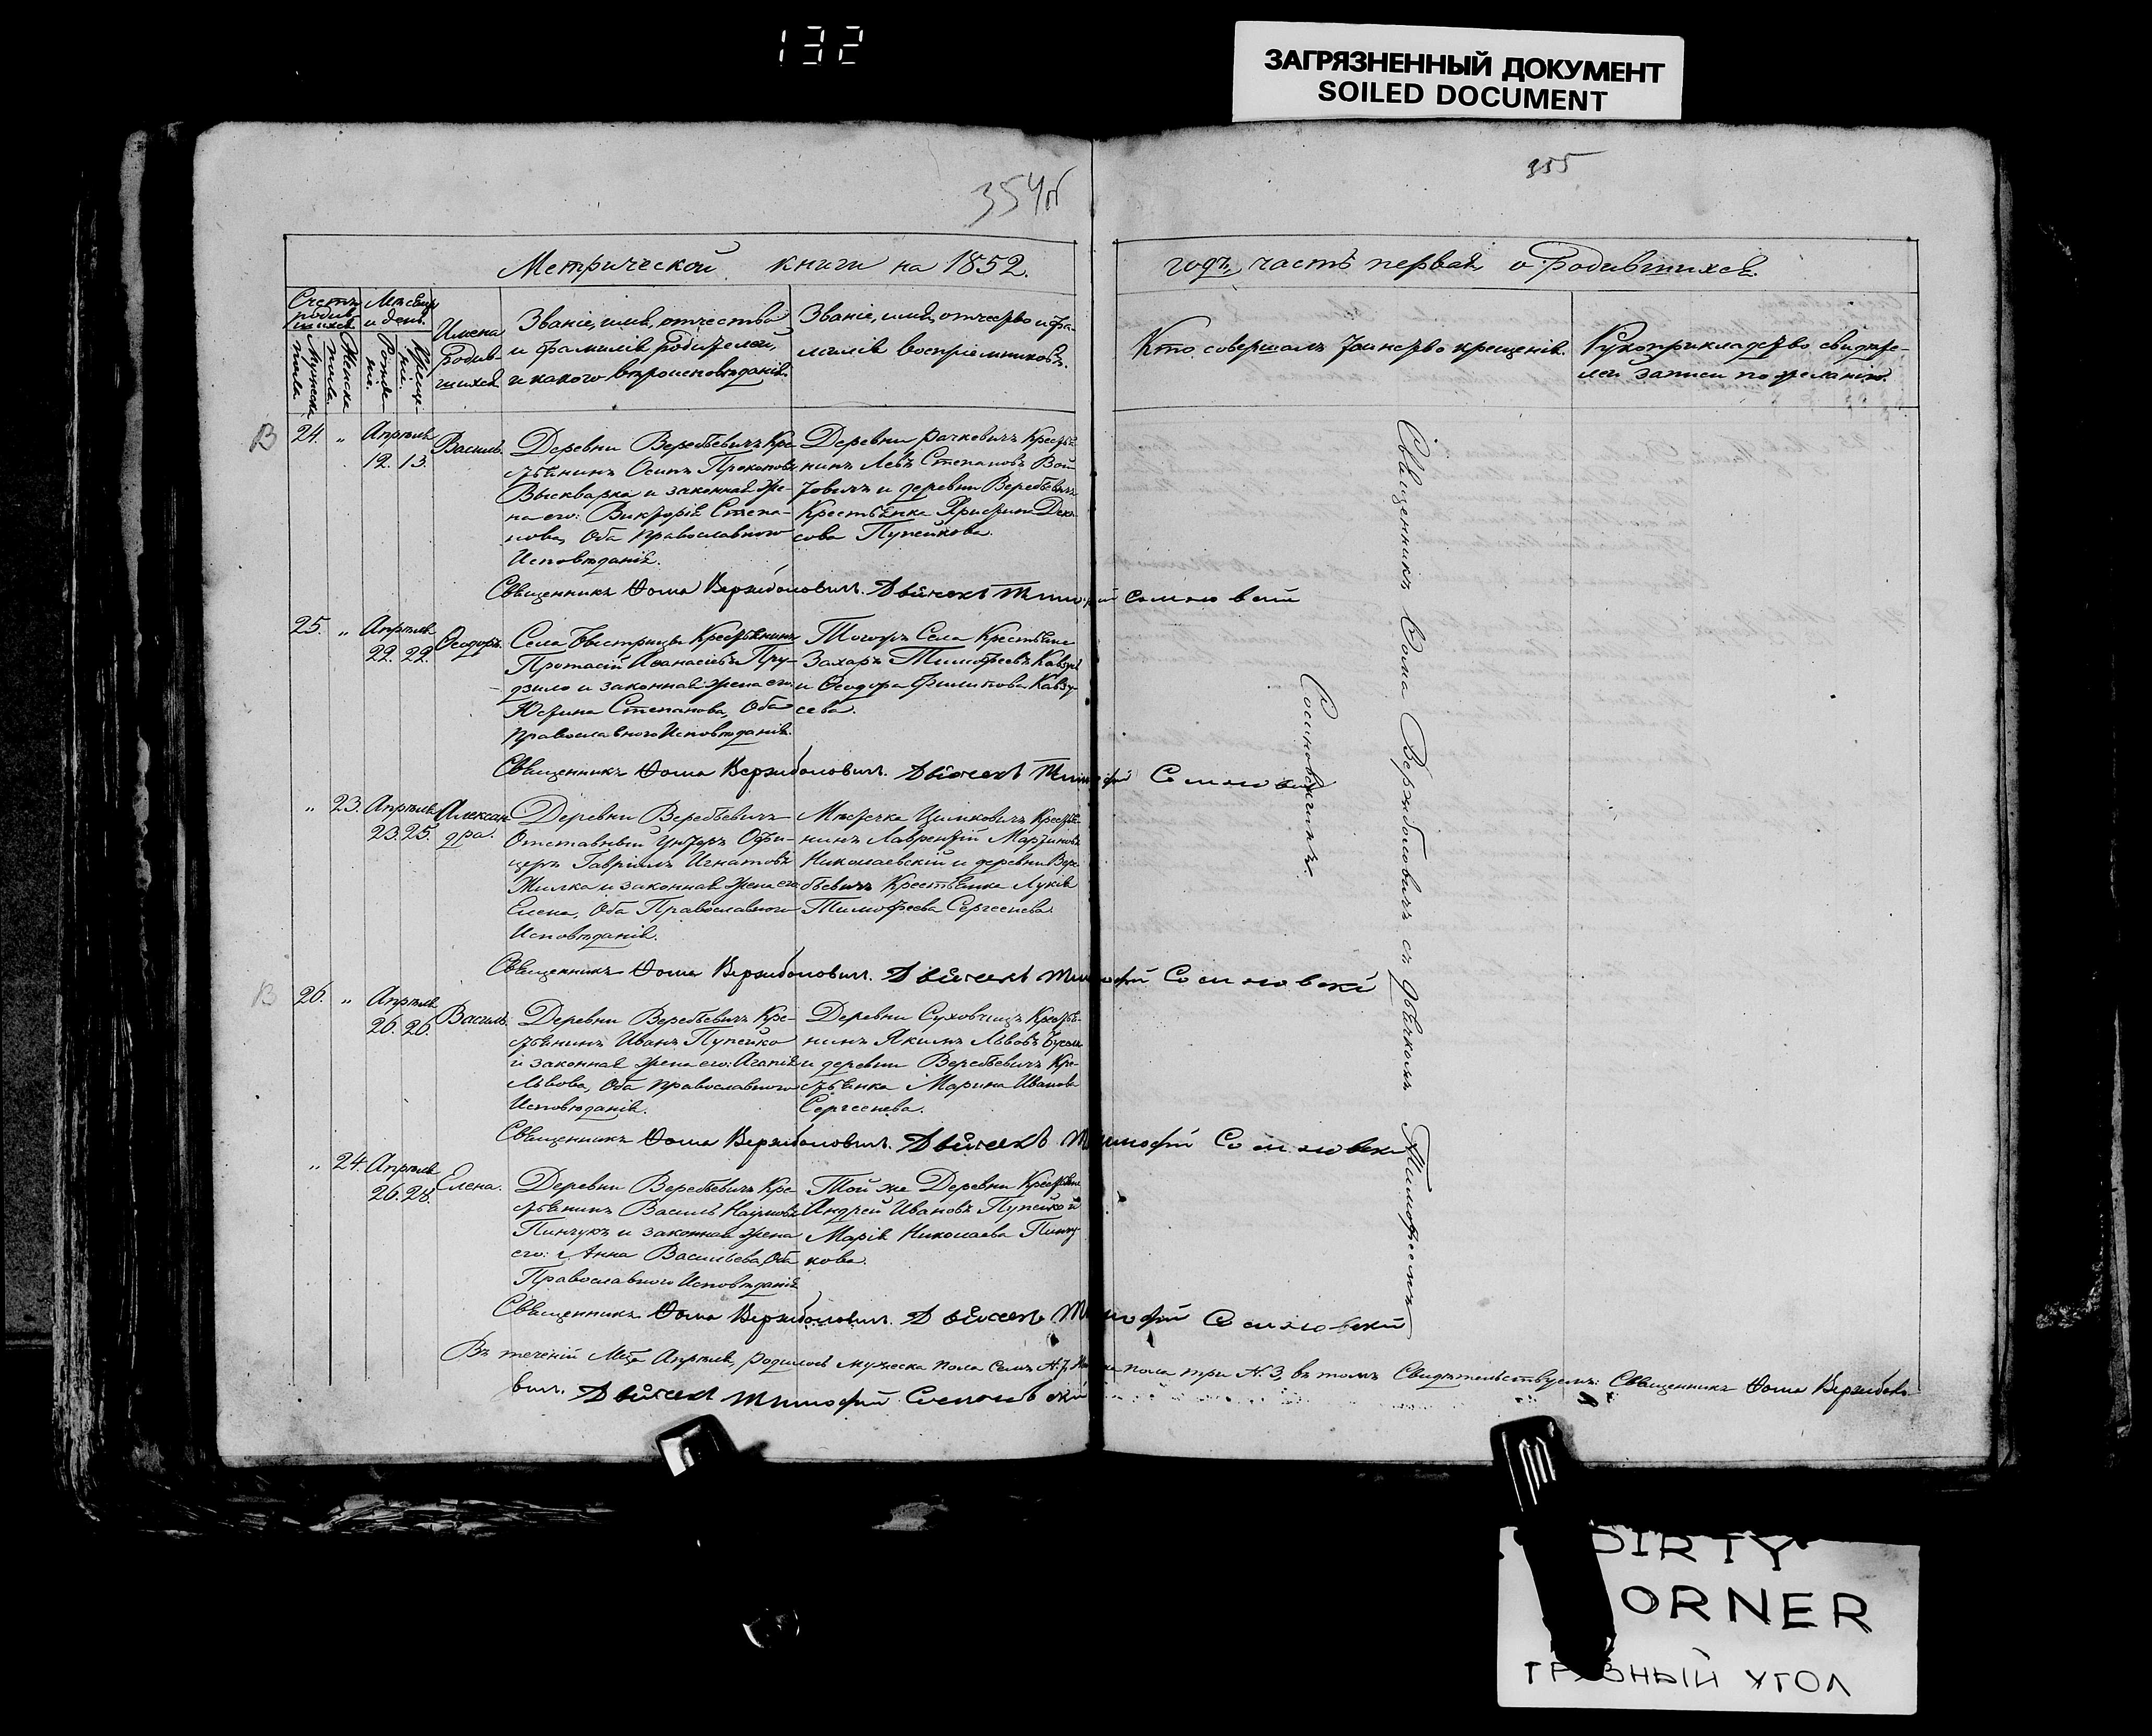 132
ЗАГРЯЗНЕННЫЙ ДОКУМЕНТ
SOILED DOCUMENT
355
354об
Метрической книги на 1852.
годъ, часть первая, о родившихся.
Счетъ родив-шихся
Мужска пола
Женска пола
Мѣсяцъ и день
Рожде-нія.
Креще-нія.
Имена родив-шихся
Званіе, имя, отчество
и фамилія родителей,
и какого вѣроисповѣданія.
Званіе, имя, отчество и фа-
милія воспріемниковъ.
Кто совершалъ таинство крещенія.
Рукоприкладство свидѣте-
лей записи по желанію.
В
24. „ Апрѣля 12. 13. Василь.
Деревни Веребьевичъ Кре-
стьянинъ Осипъ Прокоповъ
Выскварка и законная же-
на его: Викторія Степа-
нова, Оба православного
Исповѣданія.
Деревни Рачкевичъ Крестья-
нинъ Левъ Степановъ Вой-
товичъ и деревни Веребьевичъ
Крестьянка Христина
Пупейкова.
Священникъ Ѳома Вержболовичъ. Дьячекъ Тимофей Сосиновский
25. „ Апрѣля 22. 22. Ѳеодоръ.
Села Быстрицы Крестьянинъ
Протасій Аѳанасіевъ Пру-
дзило и законная жена его:
Юстина Степанова, Оба
православного Исповѣданія.
Тогожъ Села Крестьяне
Захаръ Тимофеевъ
и Ѳеодора Филипова Кавзу-
сева.
Священникъ Ѳома Вержболовичъ. Дьячекъ Тимофей Сосиновский
„ 23. Апрѣля 23. 25. Алексан-
дра.
Деревни Веребьевичъ
Отставный Унтеръ Офи-
церъ Гавріилъ Игнатовъ
Жилка и законная жена его
Елена, Оба Православного
Исповѣданія.
Мѣстечка Цимковичъ Крестья-
нинъ Лаврентій Мартиновъ
Николаевскій и деревни Вере-
бьевичъ Крестьянка Лукія
Тимофеева Сергеенева.
Священникъ Ѳома Вержболовичъ. Дьячекъ Тимофей Сосиновский
В
26. „ Апрѣля 26. 26. Василь.
Деревни Веребьевичъ Кре-
стьянинъ Иванъ Пупейко
и законная жена его: Агапія
Львова, Оба православного
Исповѣданія.
Деревни Суховчицъ Крестья-
нинъ Якимъ Львовъ
и деревни Веребьевичъ Кре-
стьянка Марина Иванова
Сергеенева.
Священникъ Ѳома Вержболовичъ. Дьячекъ Тимофей Сосиновский
„ 24. Апрѣля 26. 28. Елена.
Деревни Веребьевичъ Кре-
стьянинъ Василь Наумовъ
Пинчукъ и законная жена
его: Анна Васильева, Оба
Православного Исповѣданія
Той же Деревни Крестьяне
Андрей Ивановъ Пупейко и
Марія Николаева Пинчу-
кова.
Священникъ Ѳома Вержболовичъ. Дьячекъ Тимофей Сосиновский
Священникъ Ѳома Вержболовичъ съ дьячкомъ Тимофеемъ
Сосиновскимъ.
Въ теченіи Мца Апрѣля, родилось мужеска пола семь №7, Женска пола три №3, въ томъ Свидѣтельствуемъ: Священникъ Ѳома Вержболо-
вичъ. Дьячекъ Тимофей Сосиновский
DIRTY
CORNER
ГРЯЗНЫЙ УГОЛ